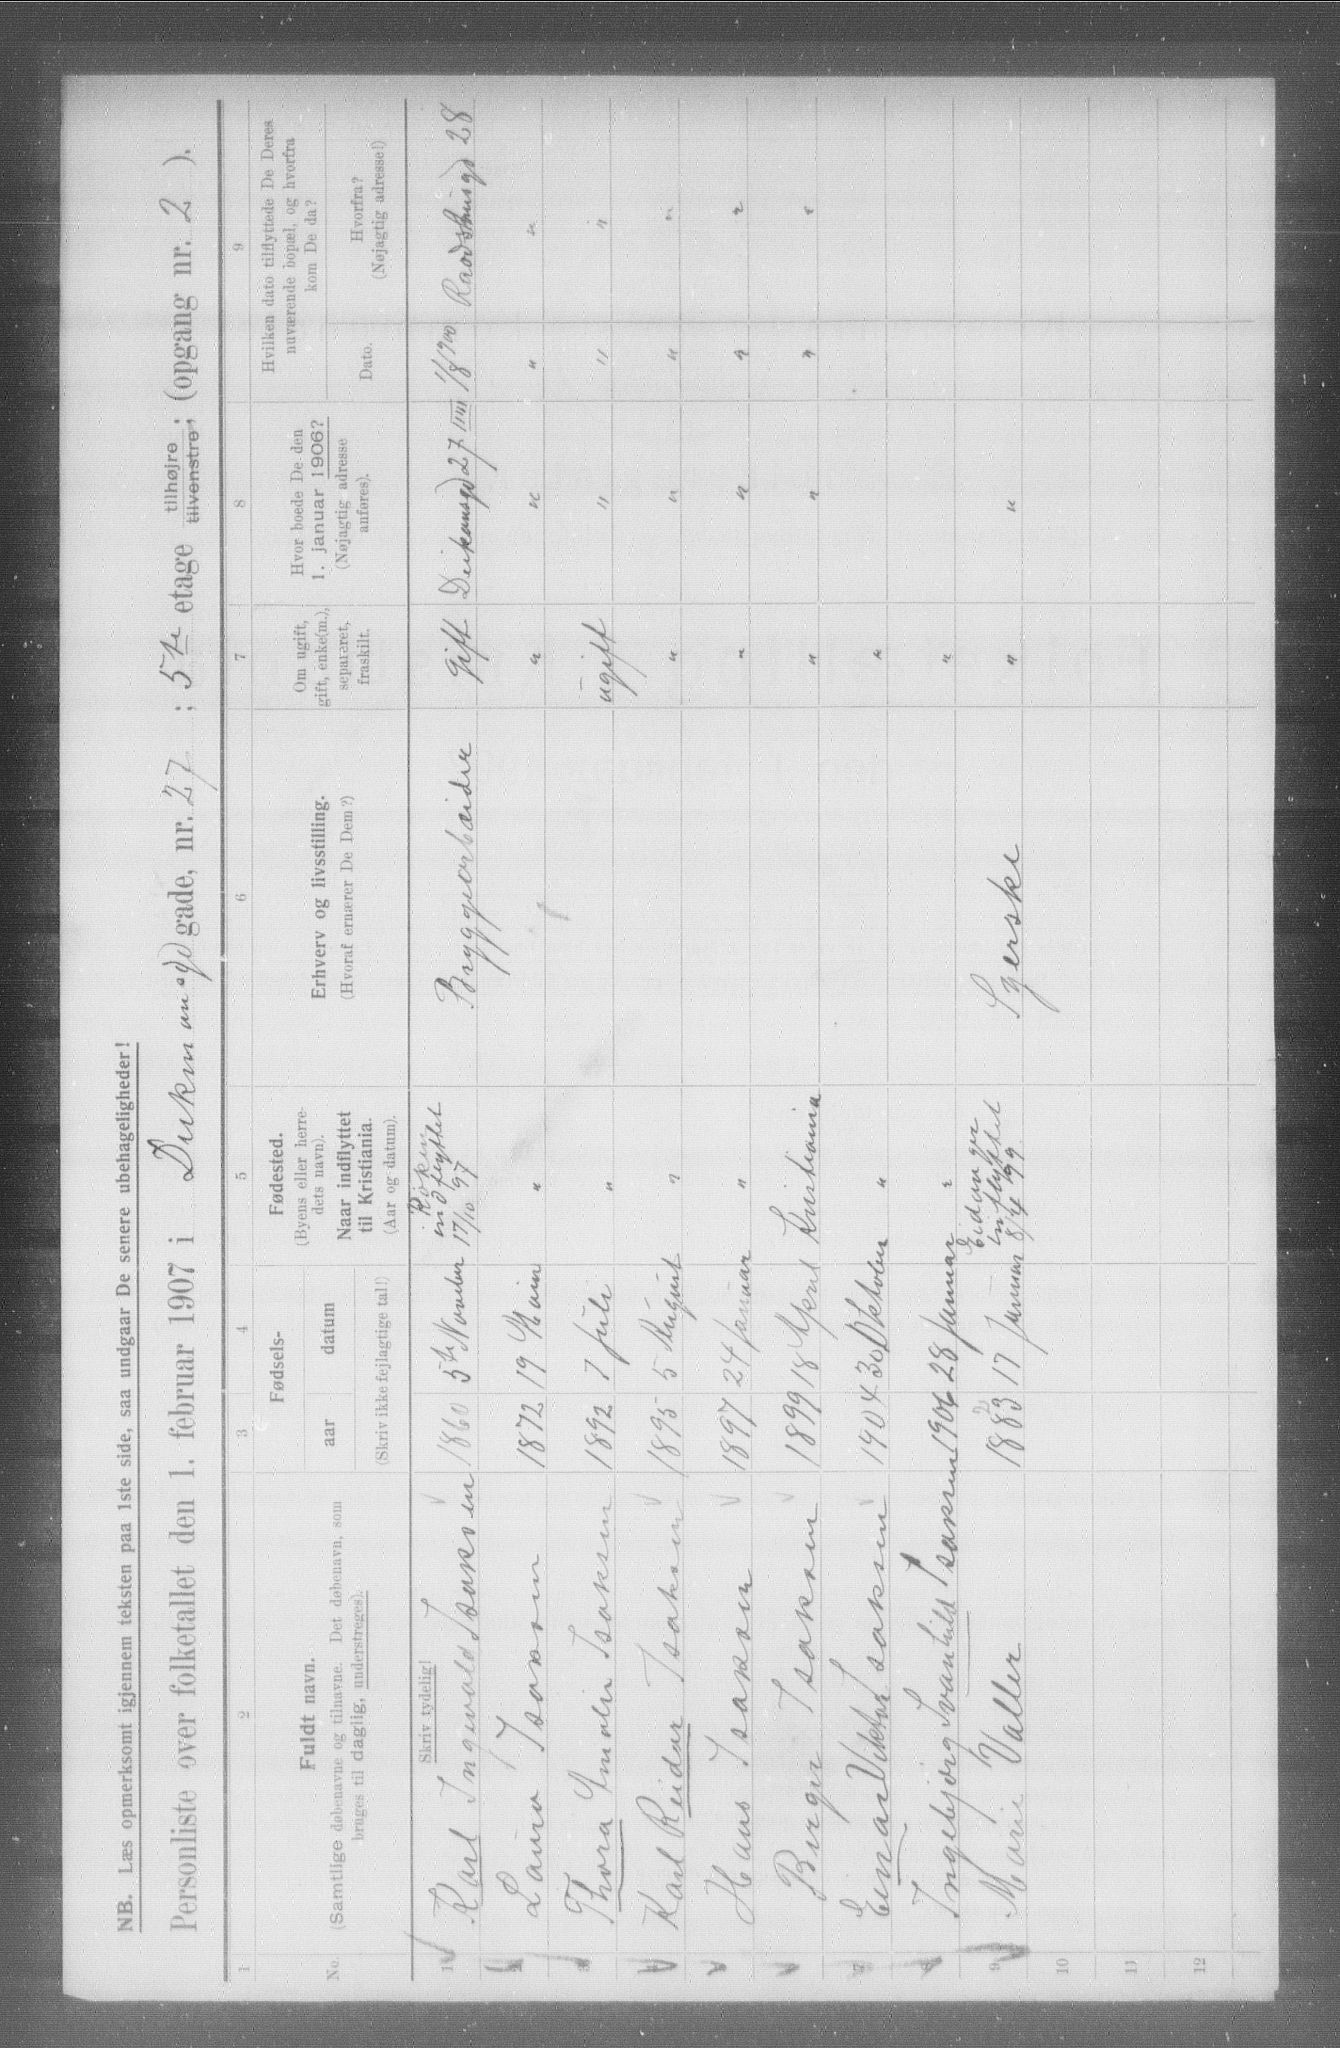 NB. Læs opmerksomt igjennem teksten paa 1ste side, saa undgaar De senere ubehageligheder!
Personliste over folketallet den 1. februar 1907 i gade, nr. 27 ; 5te etage tilhøjre tilvenstre; (opgang nr. 2 ).
1 2 3 4 5 6 7 8 9
No.
Fuldt navn.
(Samtlige døbenavne og tilnavne. Det døbenavn, som
bruges til daglig, understreges).
Skriv tydelig!
Fødsels-
aar datum
(Skriv ikke fejlagtige tal!)
Fødested.
(Byens eller herre-
dets navn).
Naar indflyttet
til Kristiania.
(Aar og datum).
Erhverv og livsstilling.
(Hvoraf ernærer De Dem?)
Om ugift,
gift, enke(m.),
separeret,
fraskilt.
Hvor boede De den
1. januar 1906?
(Nøjagtig adresse
anføres).
Hvilken dato tilflyttede De Deres
nuværende bopæl, og hvorfra
kom De da?
Dato.
Hvorfra?
(Nøjagtig adresse!)
1 Karl Ingvald Isaksen 1860 5te November Røken indflyttet 17/10 97 Bryggearbeider gift 27 Raadshusgd 28
2 Laura Isaksen 1872 19 " " " " "
3 Thora Amalie Isaksen 1892 7 Juli " ugift " " "
4 Karl Reidar Isaksen 1895 5 August " " " " "
5 Hans Isaksen 1897 24 Januar " " " " "
6 Birger Isaksen 1899 18 April Kristiania " " " "
7 Einar Viktor Isaksen 1904 30 Oktober " "
8 Ingebjørg Svanhild Isaksen 1906 28 Januar " "
9 Marie Valler 1883 17 Januar Indflyttet 8/4 99 Syerske " "
10
11
12